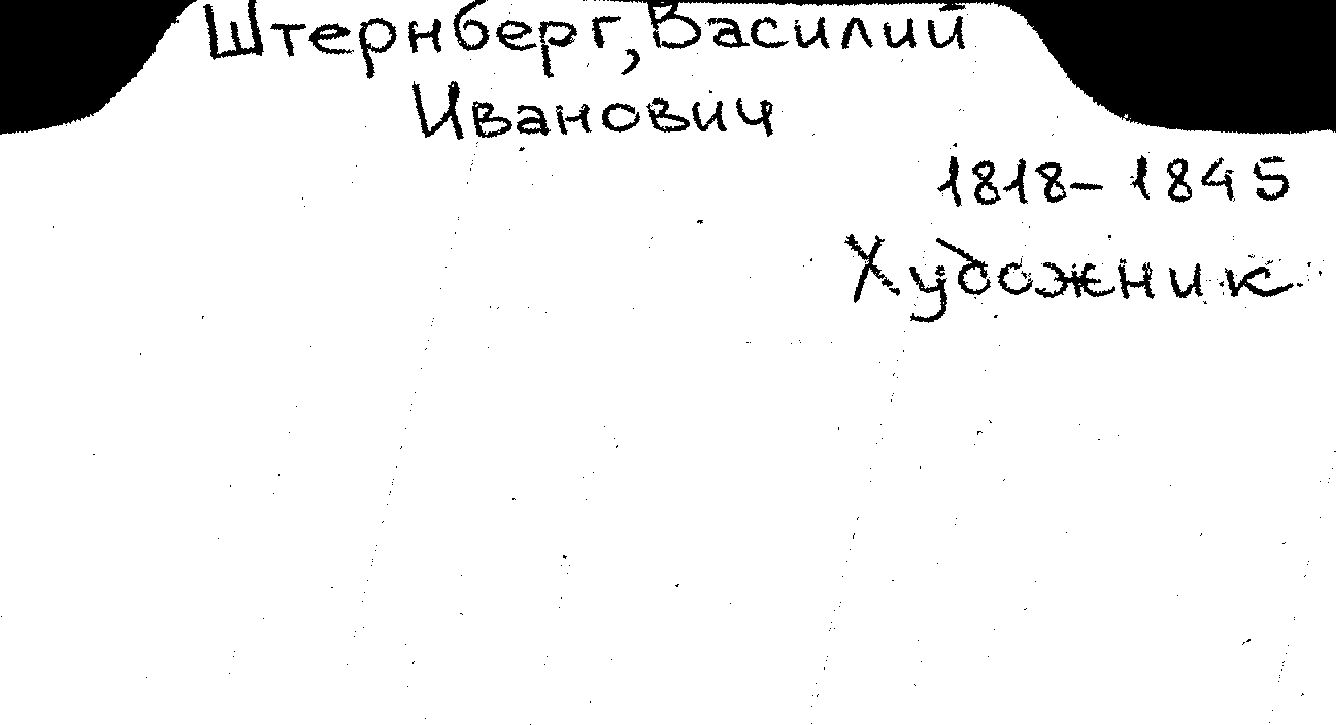 Штернберг, Василий
Иванович
1818-1845
Художник